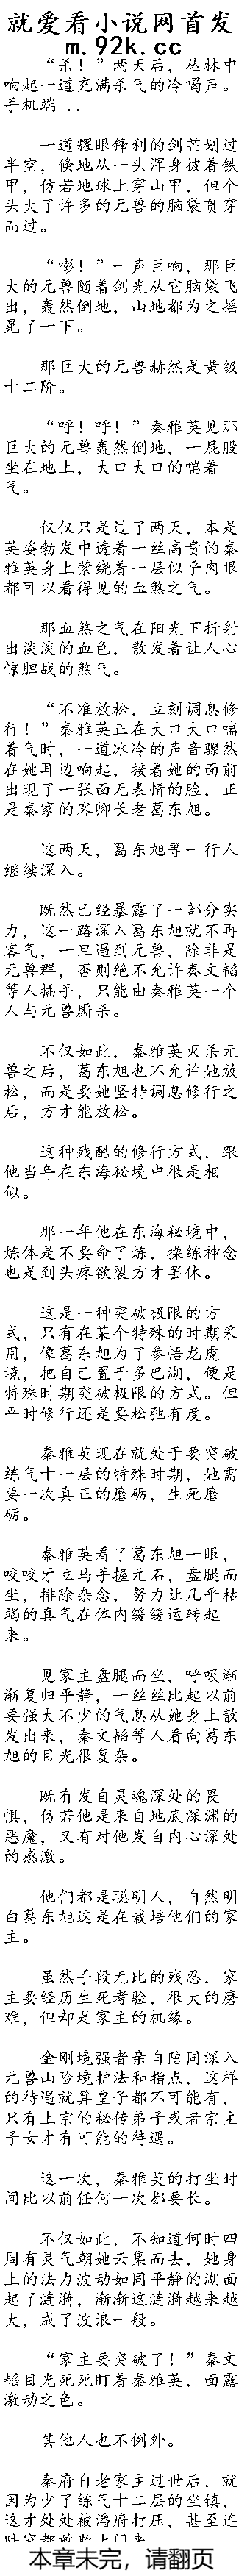 就爱看小说网首发
m.92k.cc
“杀！”两天后，丛林中
响起一道充满杀气的冷喝声。
手机端 ..
一道耀眼锋利的剑芒划过
半空，倏地从一头浑身披着铁
甲，仿若地球上穿山甲，但个
头大了许多的元兽的脑袋贯穿
而过。
“嘭！”一声巨响，那巨
大的元兽随着剑光从它脑袋飞
出，轰然倒地，山地都为之摇
晃了一下。
那巨大的元兽赫然是黄级
十二阶。
“呼！呼！”秦雅英见那
巨大的元兽轰然倒地，一屁股
坐在地上，大口大口的喘着
气。
仅仅只是过了两天，本是
英姿勃发中透着一丝高贵的秦
雅英身上萦绕着一层似乎肉眼
都可以看得见的血煞之气。
那血煞之气在阳光下折射
出淡淡的血色，散发着让人心
惊胆战的煞气。
“不准放松，立刻调息修
行！”秦雅英正在大口大口喘
着气时，一道冰冷的声音骤然
在她耳边响起，接着她的面前
出现了一张面无表情的脸，正
是秦家的客卿长老葛东旭。
这两天，葛东旭等一行人
继续深入。
既然已经暴露了一部分实
力，这一路深入葛东旭就不再
客气，一旦遇到元兽，除非是
元兽群，否则绝不允许秦文韬
等人插手，只能由秦雅英一个
人与元兽厮杀。
不仅如此，秦雅英灭杀元
兽之后，葛东旭也不允许她放
松，而是要她坚持调息修行之
后，方才能放松。
这种残酷的修行方式，跟
他当年在东海秘境中很是相
似。
那一年他在东海秘境中，
炼体是不要命了炼，操练神念
也是到头疼欲裂方才罢休。
这是一种突破极限的方
式，只有在某个特殊的时期采
用，像葛东旭为了参悟龙虎
境，把自己置于多巴湖，便是
特殊时期突破极限的方式。但
平时修行还是要松弛有度。
秦雅英现在就处于要突破
练气十一层的特殊时期，她需
要一次真正的磨砺，生死磨
砺。
秦雅英看了葛东旭一眼，
咬咬牙立马手握元石，盘腿而
坐，排除杂念，努力让几乎枯
竭的真气在体内缓缓运转起
来。
见家主盘腿而坐，呼吸渐
渐复归平静，一丝丝比起以前
要强大不少的气息从她身上散
发出来，秦文韬等人看向葛东
旭的目光很复杂。
既有发自灵魂深处的畏
惧，仿若他是来自地底深渊的
恶魔，又有对他发自内心深处
的感激。
他们都是聪明人，自然明
白葛东旭这是在栽培他们的家
主。
虽然手段无比的残忍，家
主要经历生死考验，很大的磨
难，但却是家主的机缘。
金刚境强者亲自陪同深入
元兽山险境护法和指点，这样
的待遇就算皇子都不可能有，
只有上宗的秘传弟子或者宗主
子女才有可能的待遇。
这一次，秦雅英的打坐时
间比以前任何一次都要长。
不仅如此，不知道何时四
周有灵气朝她云集而去，她身
上的法力波动如同平静的湖面
起了涟漪，渐渐这涟漪越来越
大，成了波浪一般。
“家主要突破了！”秦文
韬目光死死盯着秦雅英，面露
激动之色。
其他人也不例外。
秦府自老家主过世后，就
因为少了练气十二层的坐镇，
这才处处被潘府打压，甚至连
本章未完，请翻页